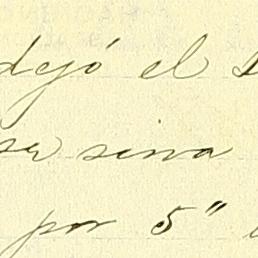 dejó el
ser sirva
por 5"